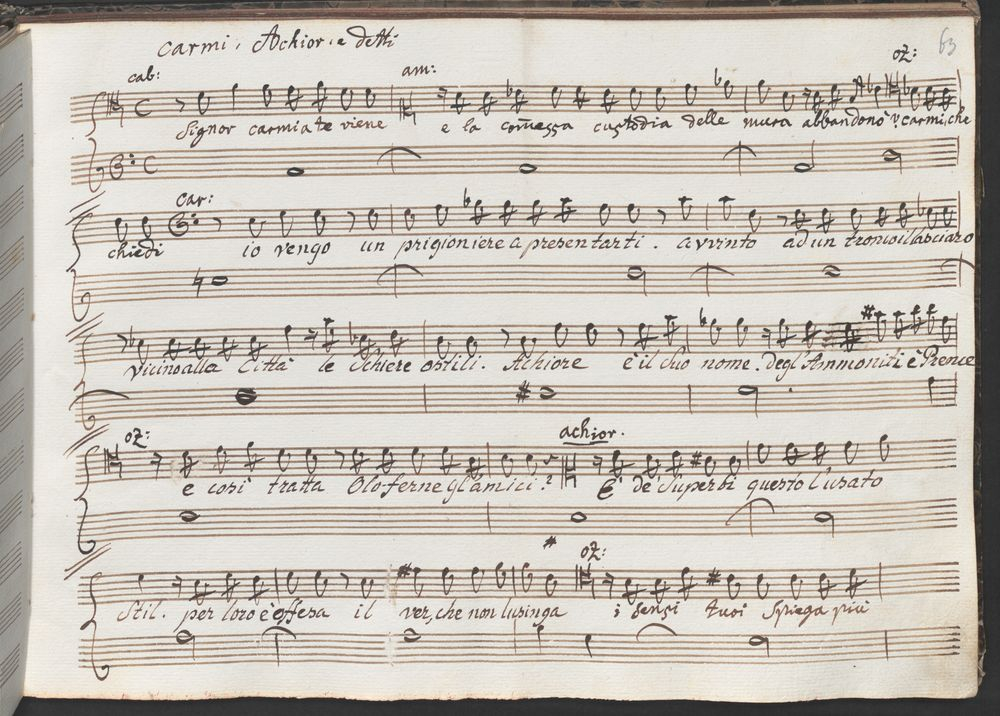 carmi, Achior, e detti
63
cab: am: oz:
Signor carmi a te viene e la com̃essa custodia delle mura abbandonò? carmi, che
car:
chiedi io vengo un prigioniere a presentarti. avvinto ad un tronco il lasciaro
vicino alla Città le schiere ostili. Achiore è il suo nome. degl'Ammoniti è Prence
oz: achior.
e così tratta Oloferne gl'amici? E' de' Superbi questo l'usato
oz:
Stil. per loro è offesa il ver, che non lusinga i sensi tuoi Spiega più